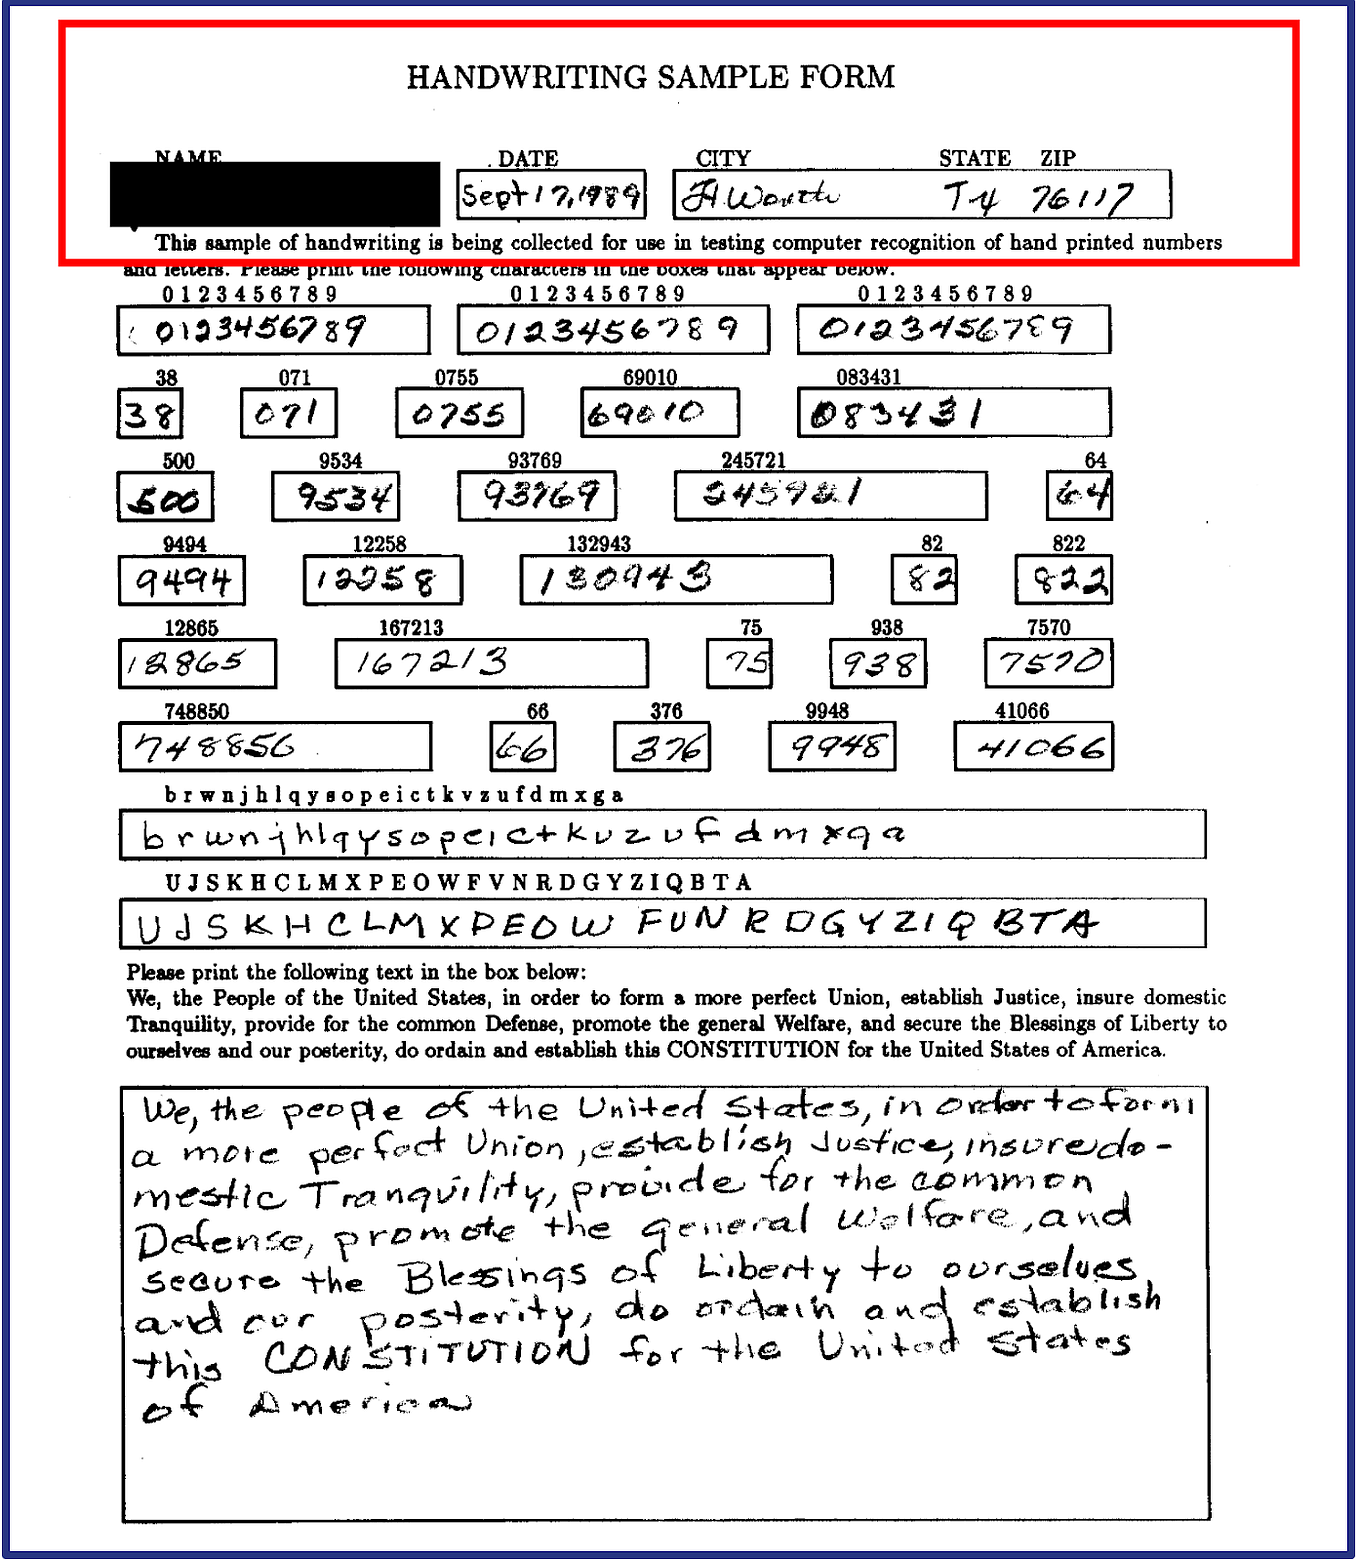 HANDWRITING SAMPLE FORM
NAME DATE CITY STATE ZIP
Sept 17, 1989 Ft Worth TX 76117
This sample of handwriting is being collected for use in testing computer recognition of hand printed numbers
and letters. Please print the following characters in the boxes that appear below.
0 1 2 3 4 5 6 7 8 9 0 1 2 3 4 5 6 7 8 9 0 1 2 3 4 5 6 7 8 9
0123456789 0123456789 0123456789
38 071 0755 69010 083431
38 071 0755 69010 083431
500 9534 93769 245721 64
500 9534 93769 245721 64
9494 12258 132943 82 822
9494 12258 130943 82 822
12865 167213 75 938 7570
12865 167213 75 938 7570
748850 66 376 9948 41066
748850 66 376 9948 41066
b r w n j h l q y s o p e i c t k v z u f d m x g a
b r w n j h l q y s o p e i c t k v z u f d m x g a
U J S K H C L M X P E O W F V N R D G Y Z I Q B T A
U J S K H C L M X P E O W F V N R D G Y Z I Q B T A
Please print the following text in the box below:
We, the People of the United States, in order to form a more perfect Union, establish Justice, insure domestic
Tranquility, provide for the common Defense, promote the general Welfare, and secure the Blessings of Liberty to
ourselves and our posterity, do ordain and establish this CONSTITUTION for the United States of America.
We, the people of the United States, in order to form
a more perfect Union, establish Justice, insure do-
mestic Tranquility, provide for the common
Defense, promote the general Welfare, and
secure the Blessings of Liberty to ourselves
and our posterity, do ordain and establish
this CONSTITUTION for the United States
of America